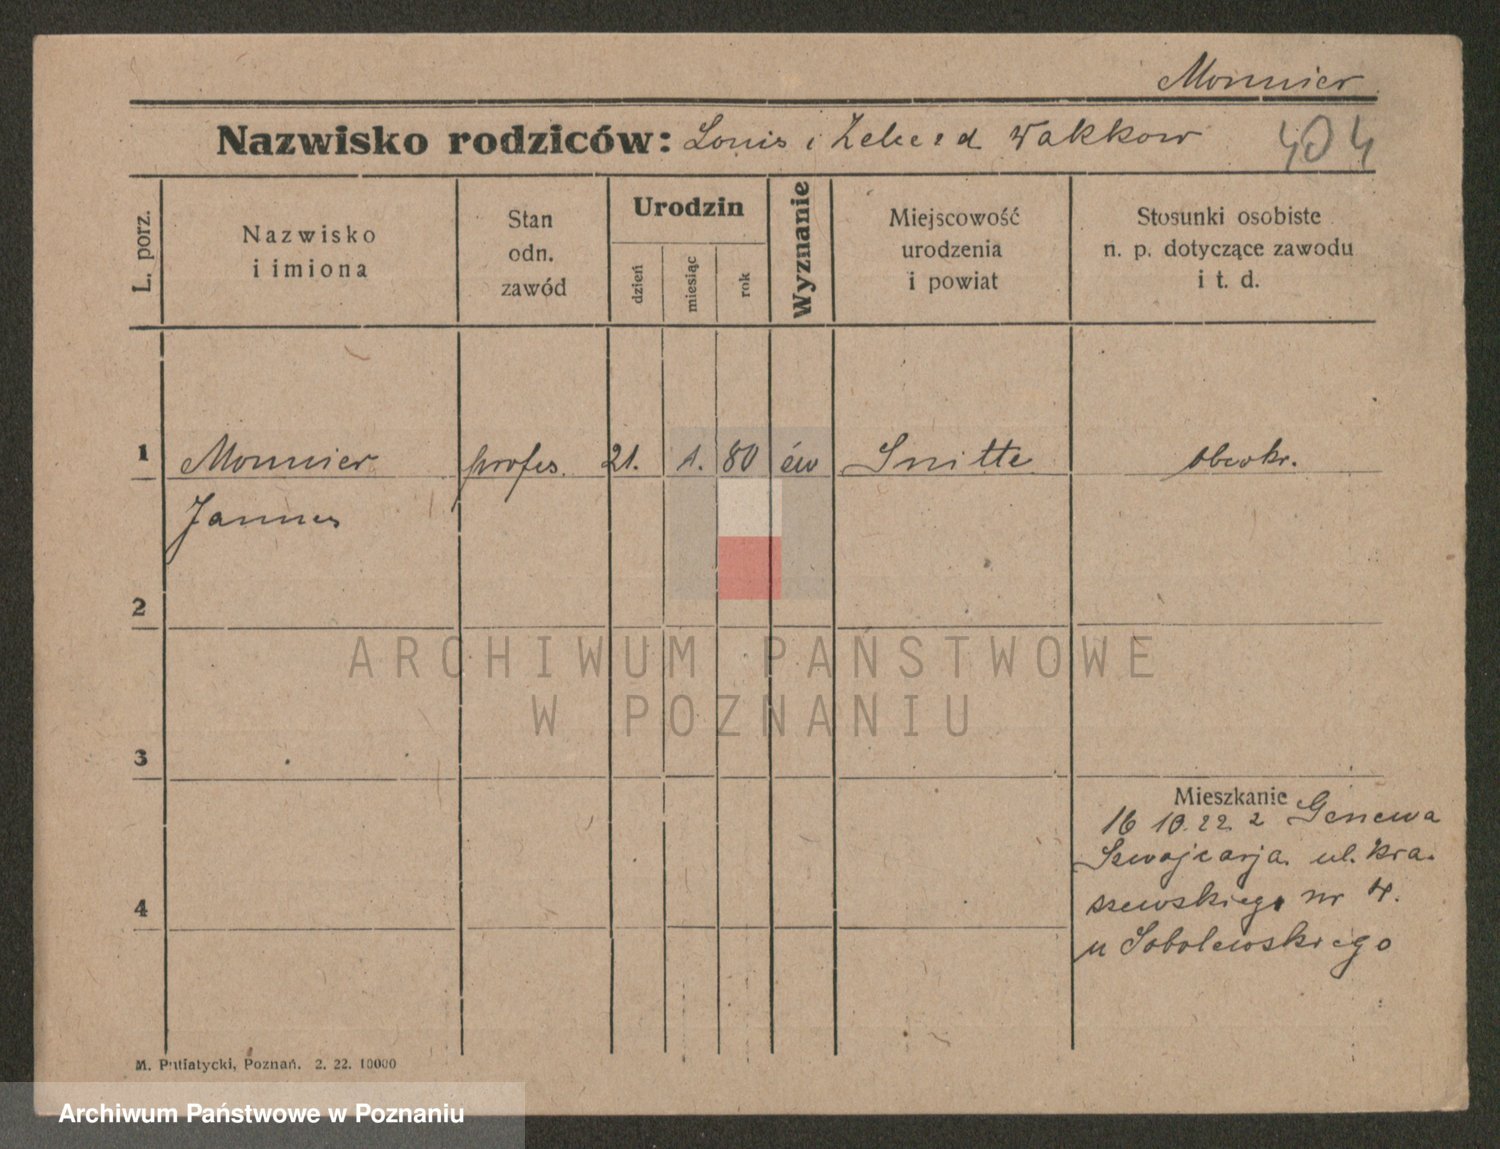 Monnier
Nazwisko rodziców: Louis i Wakkow
404
L. porz.
Nazwisko
i imiona
Stan
odn.
zawód
Urodzin
dzień
miesiąc
rok
Wyznanie
Miejscowość
urodzenia
i powiat
Stosunki osobiste
n. p. dotyczące zawodu
i t. d.
1 Monnier profes. 21. 1. 80 ew
Jannes
2
ARCHIWUM PAŃSTWOWE
W POZNANIU
3
Mieszkanie
16 10. 22 z Genewa
Szwajcarja. ul. Kra-
szewskiego nr 4.
4
u Sobolewskiego
M. Putiatycki, Poznań. 2. 22. 10000
Archiwum Państwowe w Poznaniu